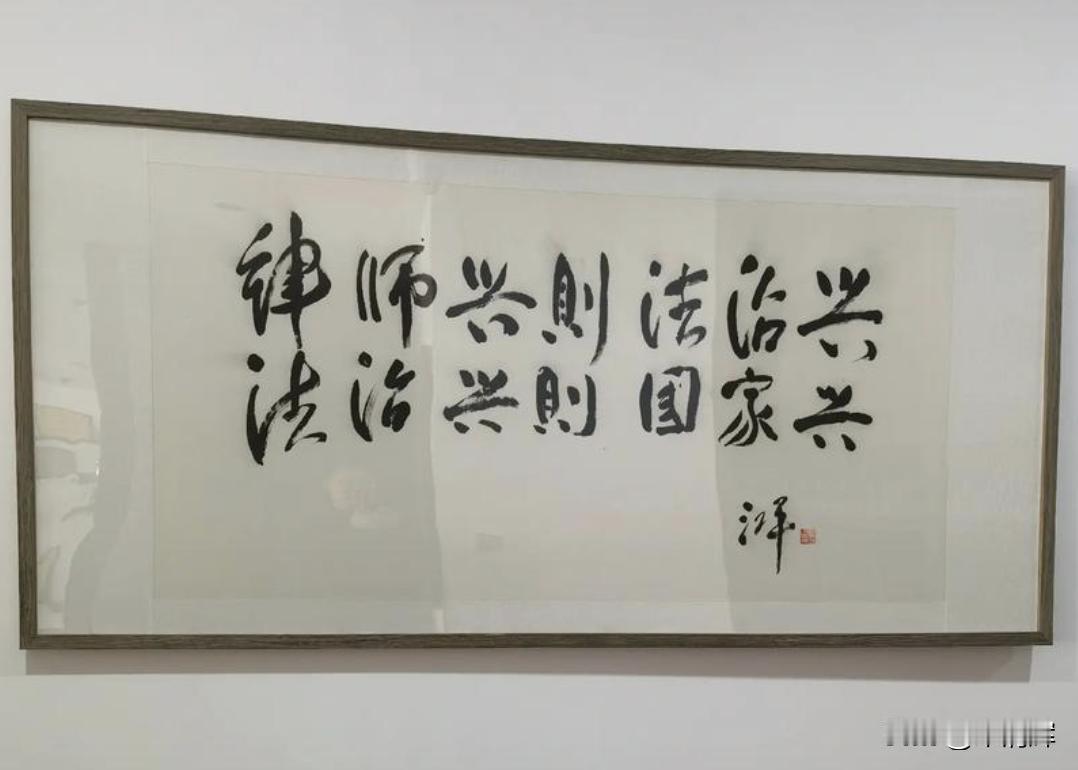 律师兴则法治兴
法治兴则国家兴
江平